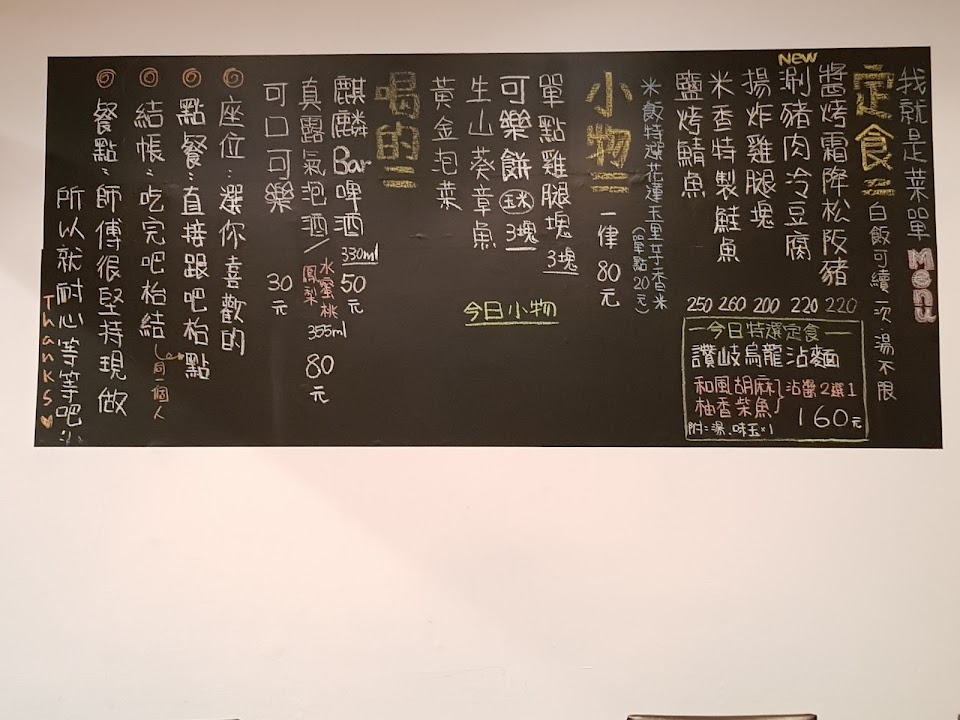 我就是菜單 Menu
定食=
白飯可續一次 湯不限
醬烤霜降松阪豬 220
NEW
涮豬肉冷豆腐 220
揚炸雞腿塊 200
米香特製鮭魚 260
鹽烤鯖魚 250
一今日特選定食一
讚岐烏龍沾麵
和風胡麻
柚香柴魚
沾醬2選1
160元
附=湯、味玉×1
米飯特選花蓮玉里芋香米
(單點20元)
小物=
一律80元
單點雞腿塊3塊
可樂餅(玉米)3塊
生山葵章魚
黃金泡菜
今日小物
喝的=
麒麟Bar啤酒 330ml 50元
真露氣泡酒/水蜜桃
鳳梨
355ml 80元
可口可樂 30元
◎座位:選你喜歡的
◎點餐:直接跟吧枱點
◎結帳:吃完吧枱結
同一個人
◎餐點:師傅很堅持現做
所以就耐心等等吧
Thanks